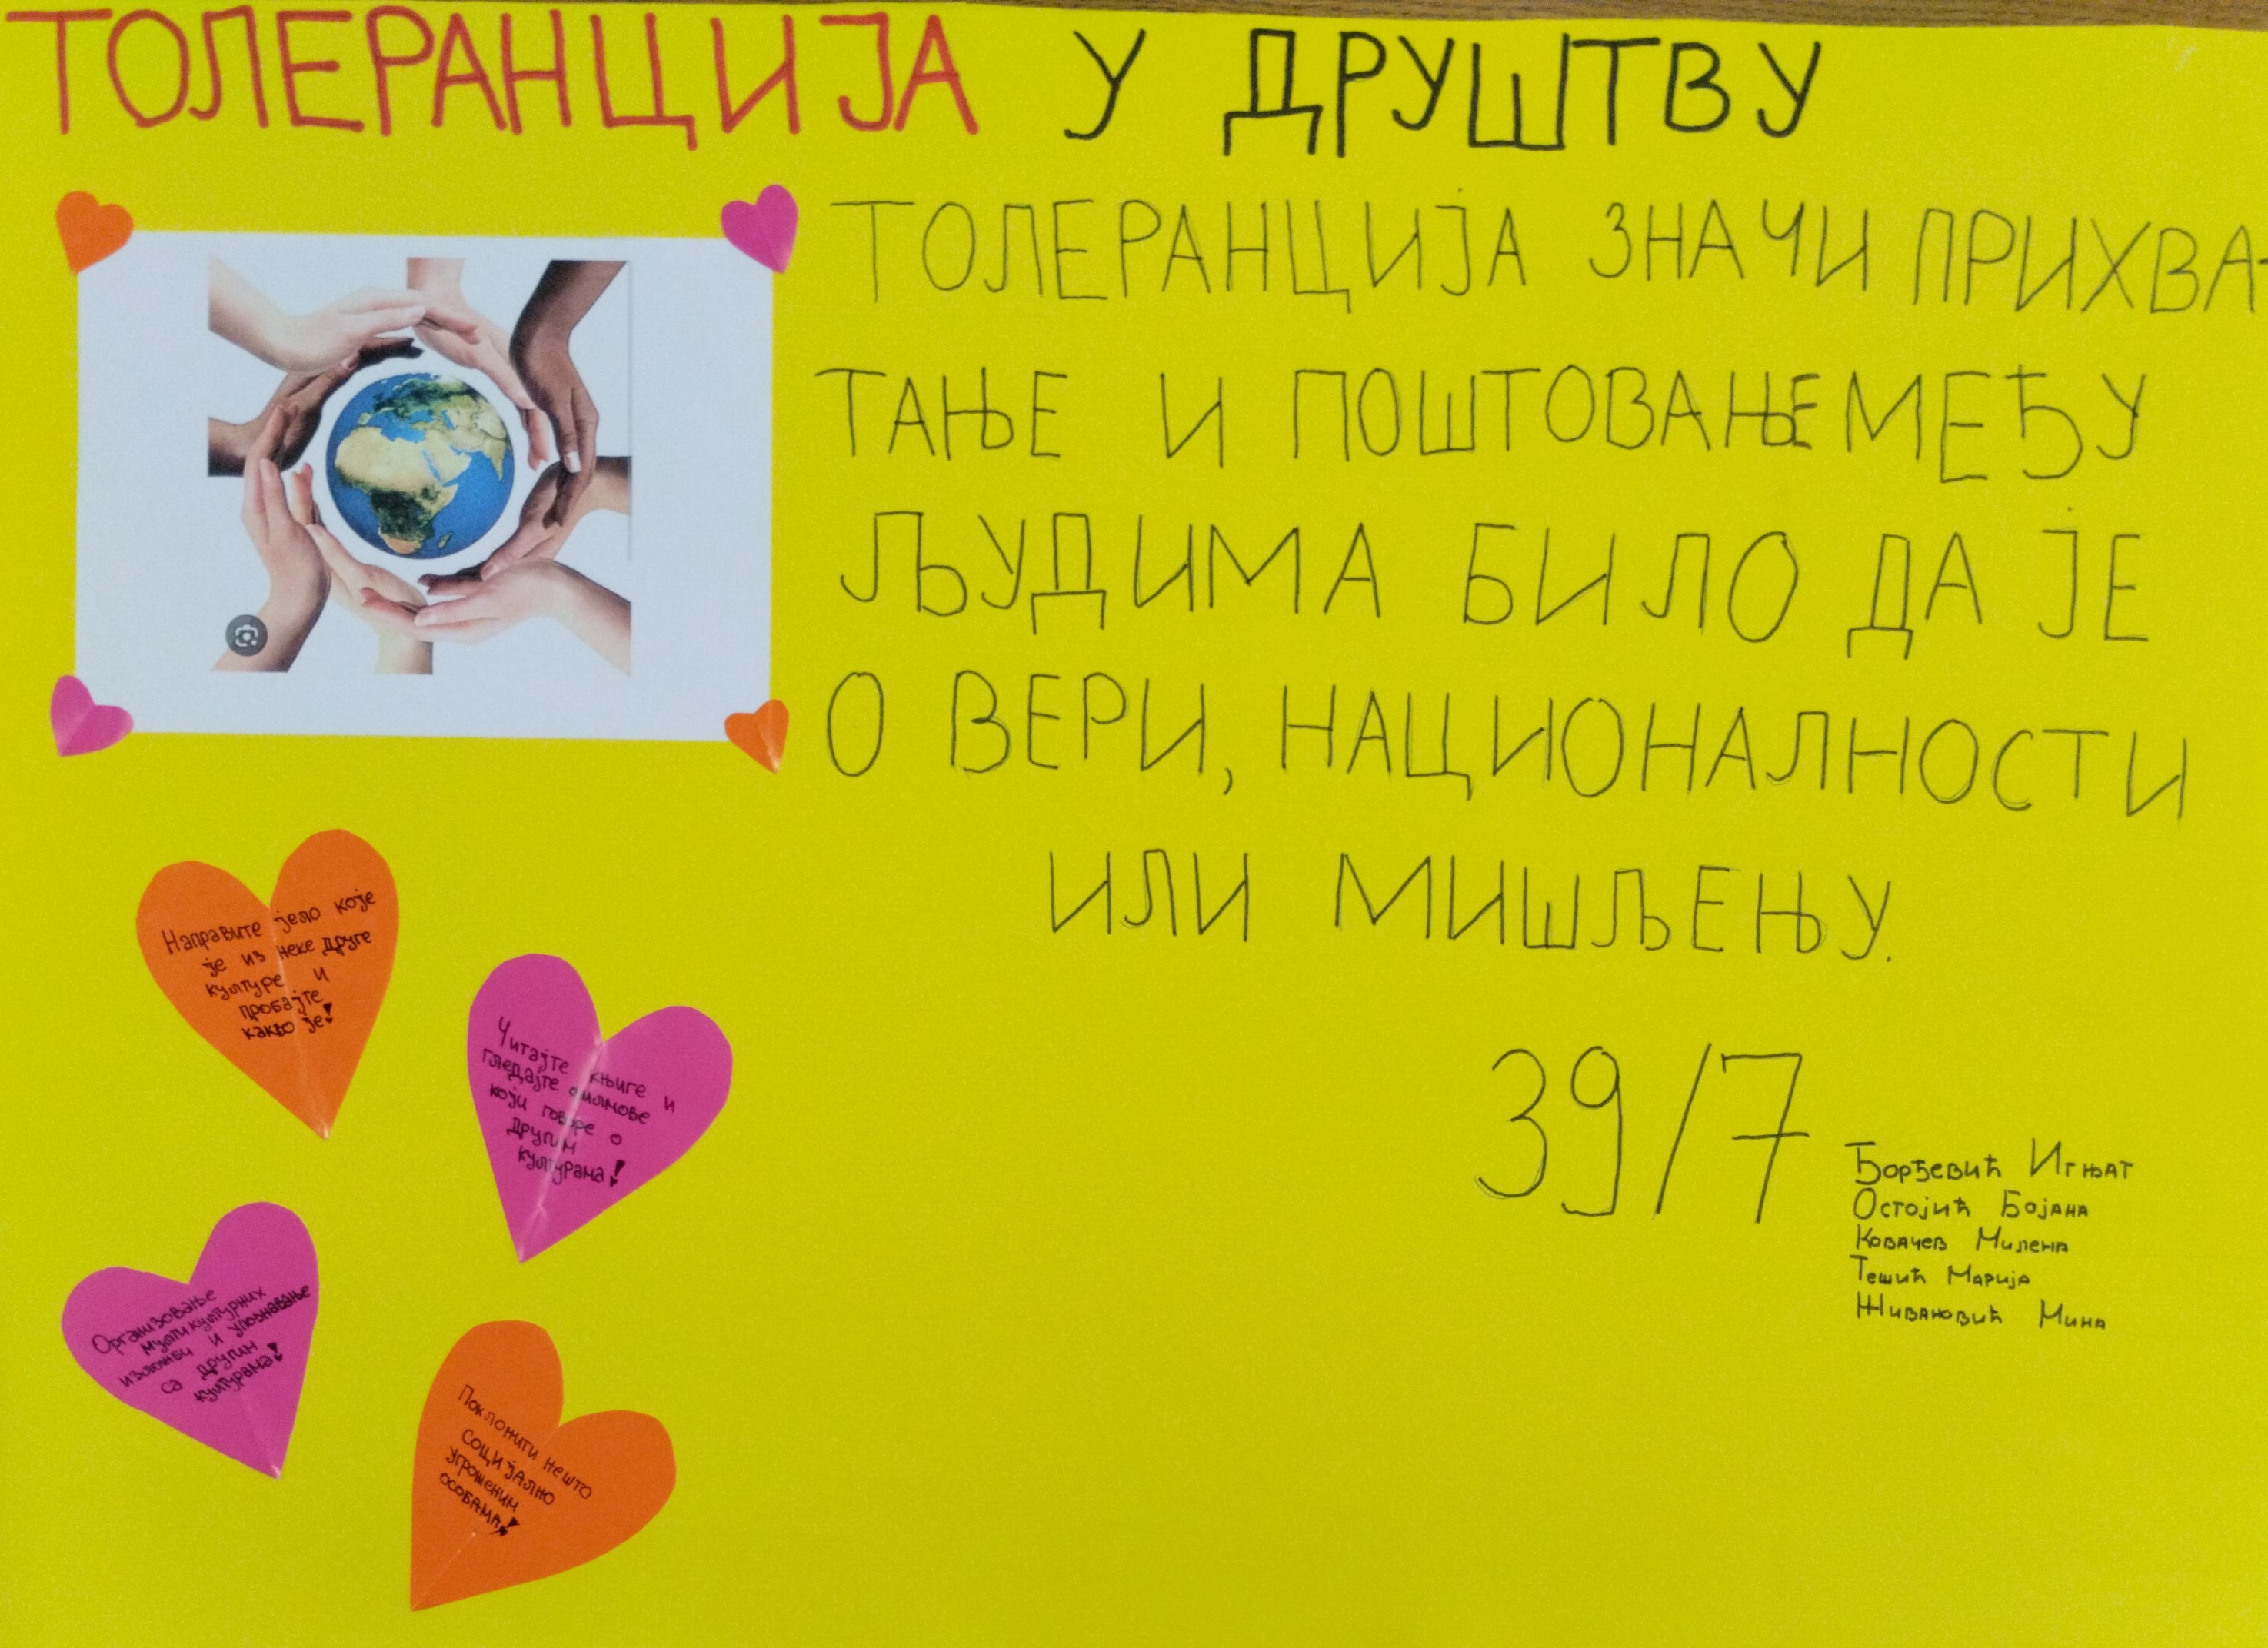 ТОЛЕРАНЦИЈА У ДРУШТВУ
ТОЛЕРАНЦИЈА ЗНАЧИ ПРИХВА-
ТАЊЕ И ПОШТОВАЊЕ МЕЂУ
ЉУДИМА БИЛО ДА ЈЕ
О ВЕРИ, НАЦИОНАЛНОСТИ
ИЛИ МИШЉЕЊУ.
Направите јело које
је из неке друге
културе и
пробајте
какво је!
Читајте књиге и
гледајте филмове
који говоре о
другим
културама!
Организовање
мултикултурних
изложби и упознавање
са другим
културама!
Поклонити нешто
социјално
угроженим
особама!
39/7
Ђорђевић Игњат
Остојић Бојана
Ковачев Милена
Тешић Марија
Живановић Мина